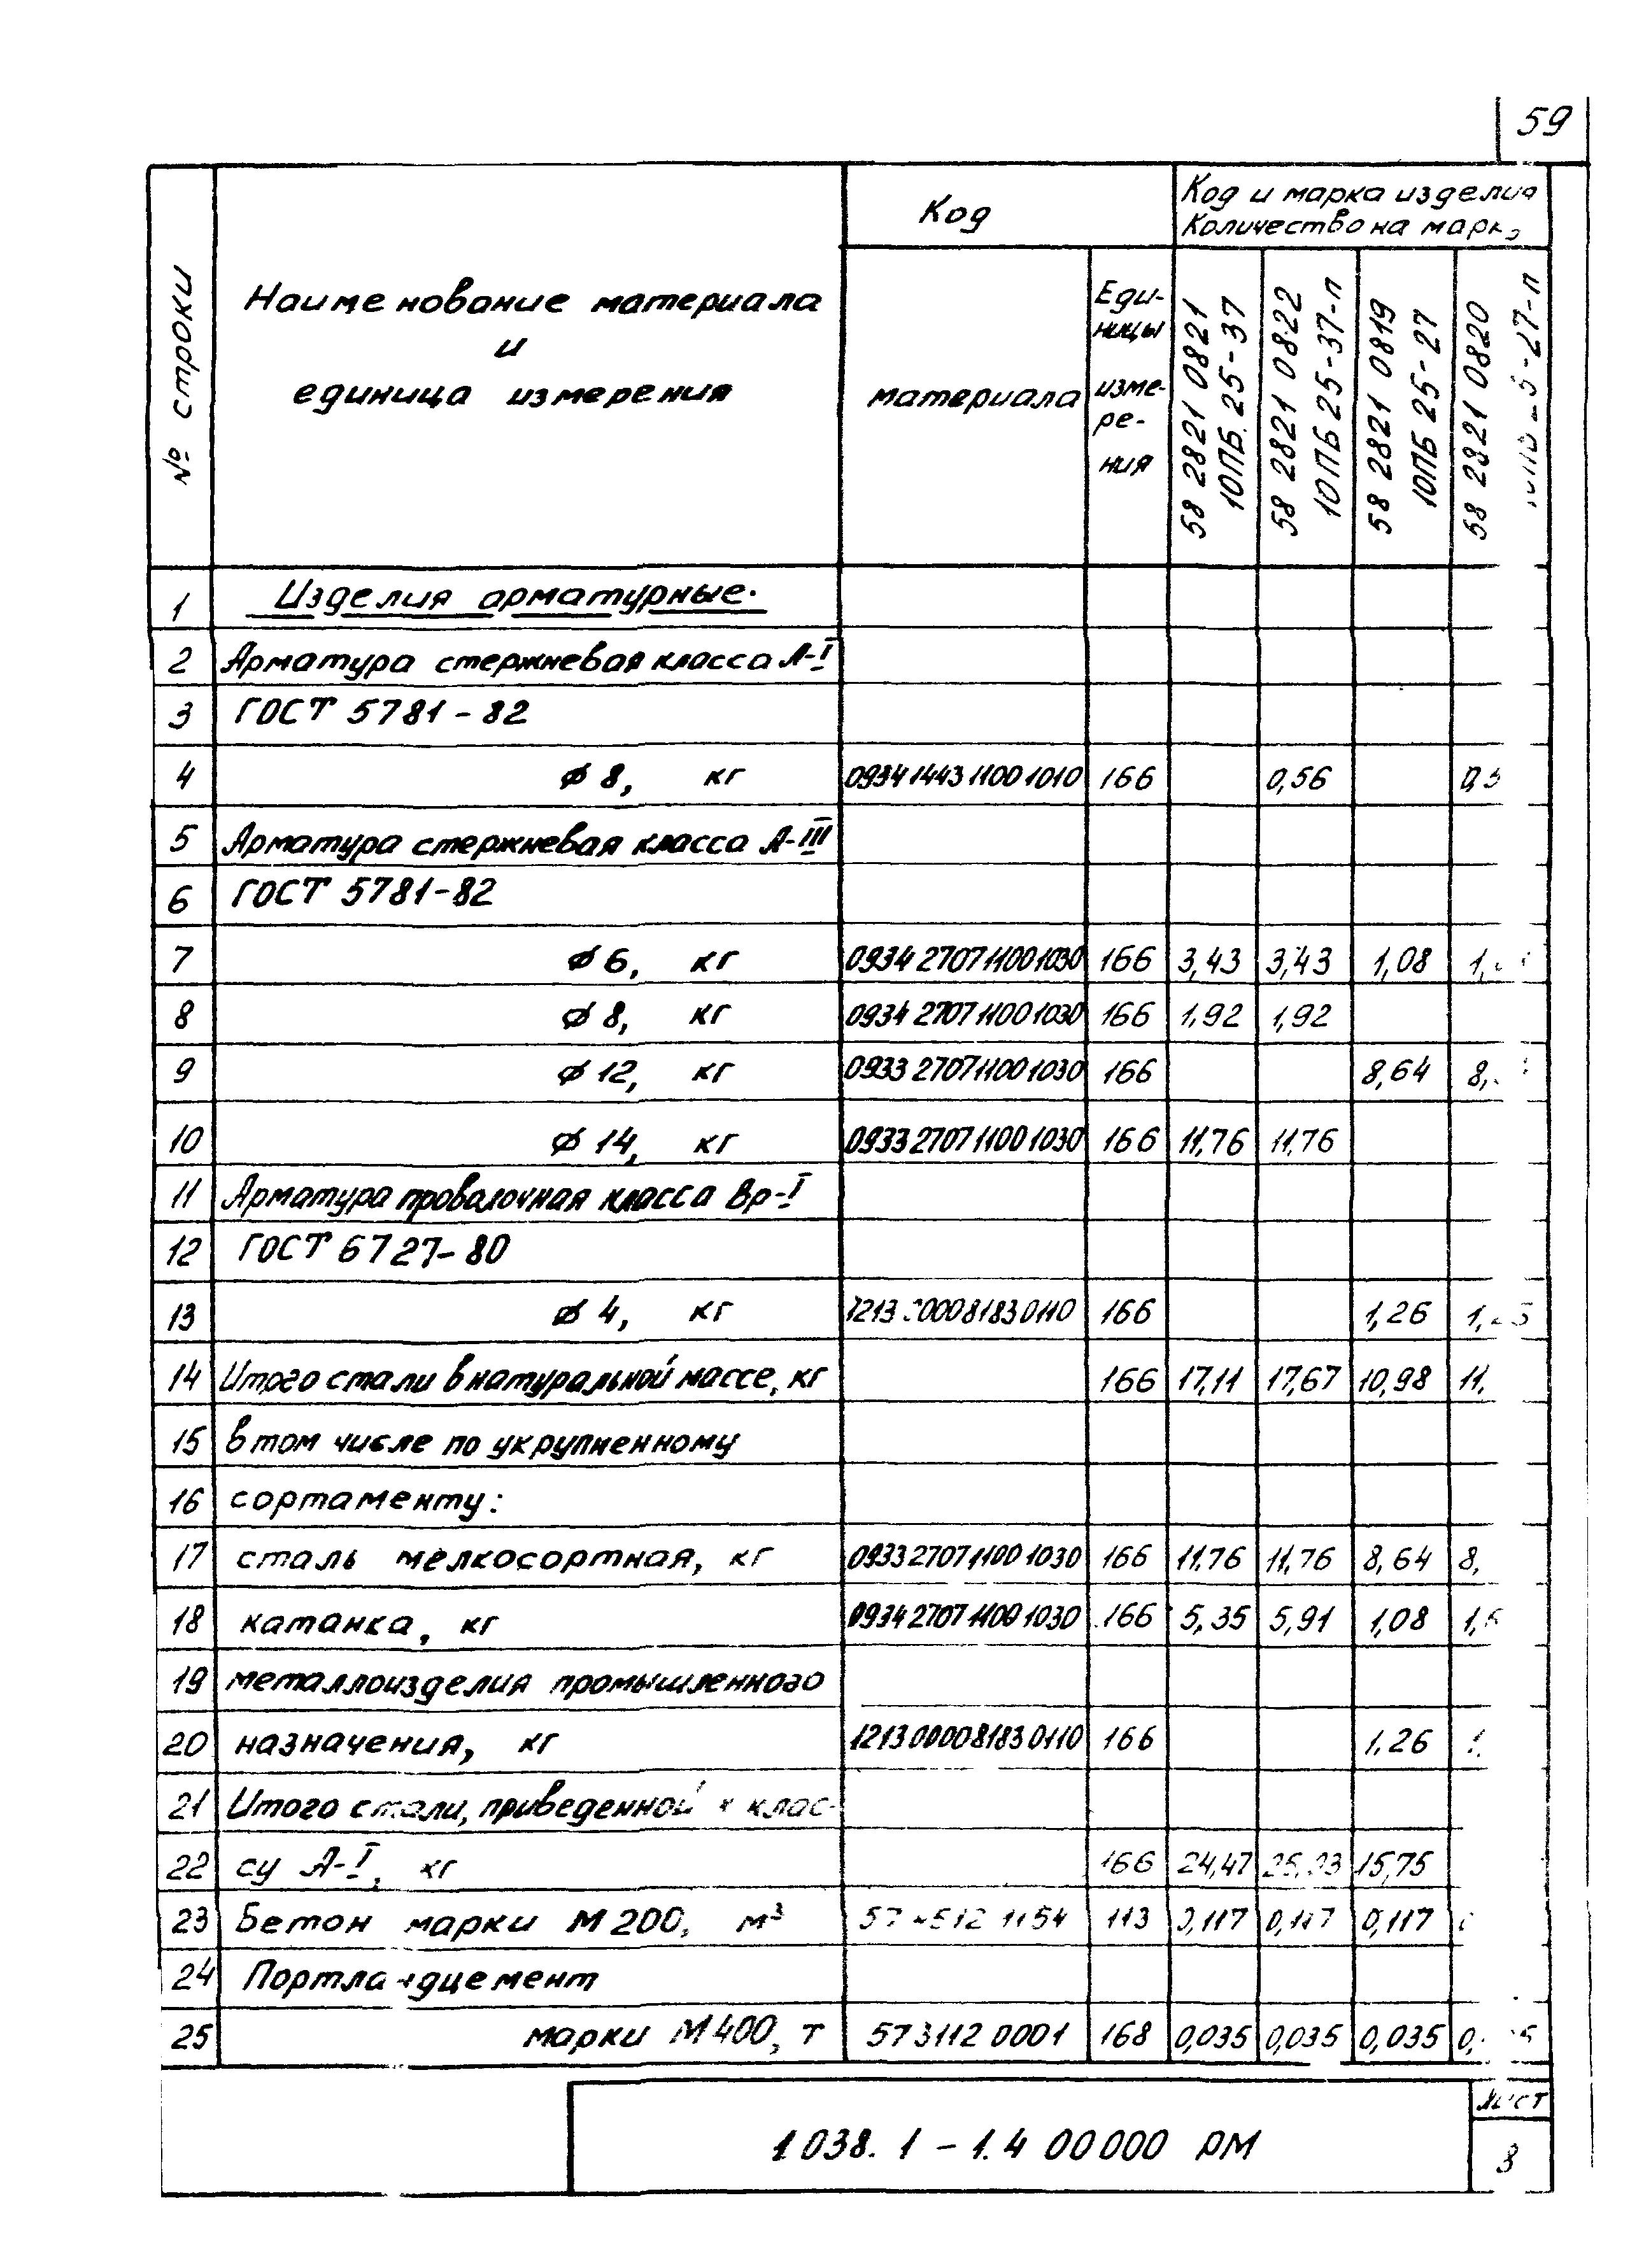 59
№ строки
Наименование материала
и
единица измерения
Код
Код и марка изделия
Количество на марку
материала
Еди-
ницы
изме-
ре-
ния
58 2821 0821
10ПБ 25-37
58 2821 0822
10ПБ 25-37-п
58 2821 0819
10ПБ 25-27
58 2821 0820
-27-п
1 Изделия арматурные.
2 Арматура стержневая класса А-I
3 ГОСТ 5781-82
4 ϕ 8, кг 0934 1443 1100 1010 166 0,56
5 Арматура стержневая класса А-III
6 ГОСТ 5781-82
7 ϕ 6, кг 0934 2707 1100 1030 166 3,43 3,43 1,08
8 ϕ 8, кг 0934 2707 1100 1030 166 1,92 1,92
9 ϕ 12, кг 0933 2707 1100 1030 166 8,64
10 ϕ 14, кг 0933 2707 1100 1030 166 11,76 11,76
11 Арматура проволочная класса Вр-I
12 ГОСТ 6727-80
13 ϕ 4, кг 166 1,26
14 Итого стали в натуральной массе, кг 166 17,11 17,67 10,98 11,
15 в том числе по укрупненному
16 сортаменту:
17 сталь мелкосортная, кг 0933 2707 1100 1030 166 11,76 11,76 8,64 8,
18 катанка, кг 0934 2707 1100 1030 166 5,35 5,91 1,08
19 металлоизделия промышленного
20 назначения, кг 1213 0000 8183 0110 166 1,26
21 Итого стали, приведенной к клас-
22 су А-I, кг 166 24,47 15,75
23 Бетон марки М200, м³ 113 0,117 0,117 0,117
24 Портландцемент
25 марки М400, т 573112 0001 168 0,035 0,035 0,035
1.038.1-1.4 00000 РМ
Лист
8